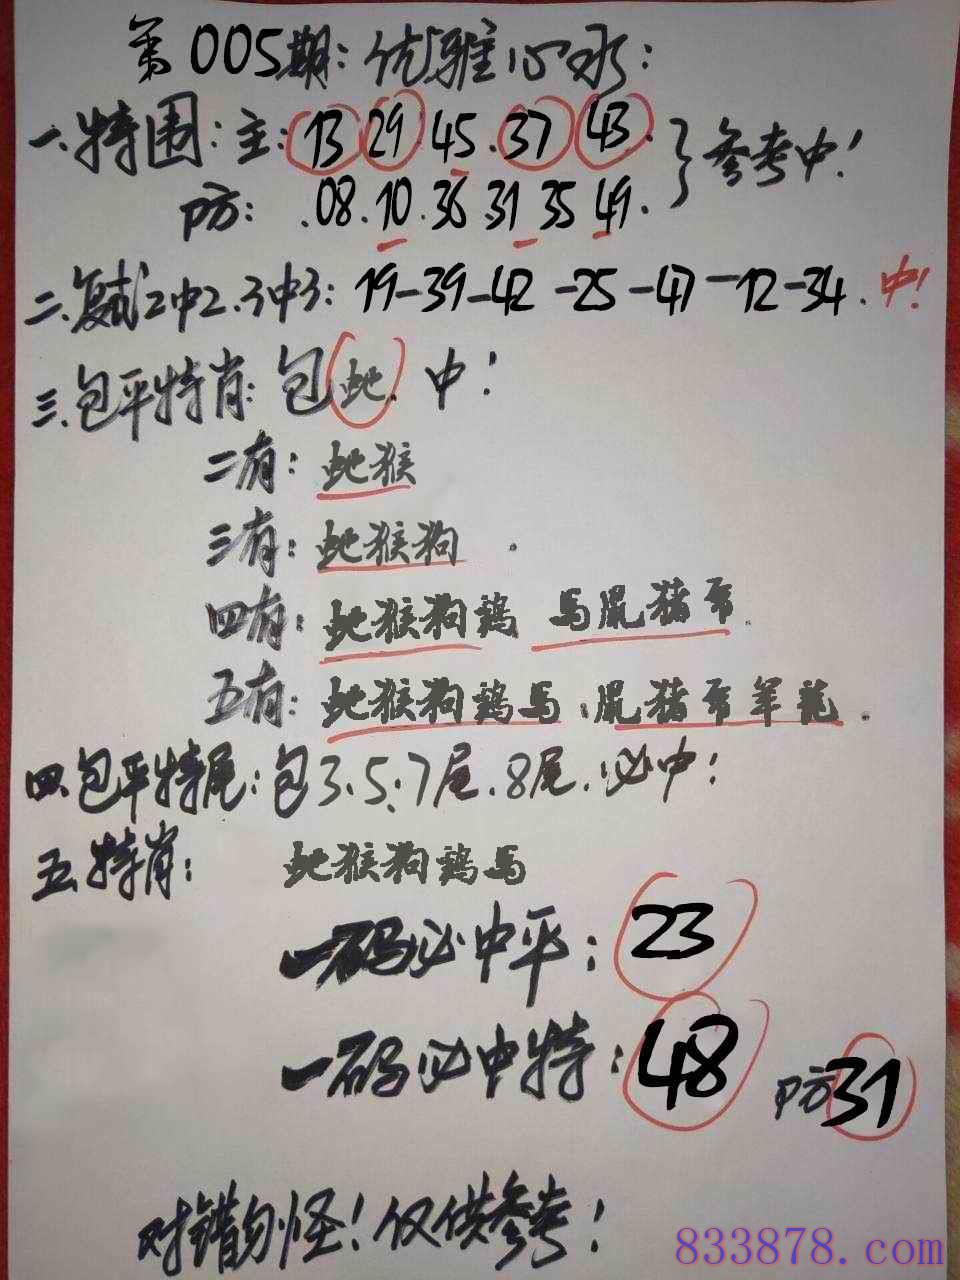 第005期:优雅心水:
一.特围:主:13 29 45.37 43.}参考中!
防:.08.10.36.31 35 49.
二.复式2中2.3中3:19-39-42-25-47-12-34.中!
三.包平特肖:包蛇.中!
二有:蛇猴
三有:蛇猴狗.
四有:蛇猴狗鸡 马鼠猪
五有:蛇猴狗鸡马.鼠猪 羊龙.
四.包平特尾:包3.5.7尾.8尾.必中!
五.特肖:蛇猴狗鸡马
一码必中平:23
一码必中特:48 防31
对错勿怪!仅供参考!
833878.com